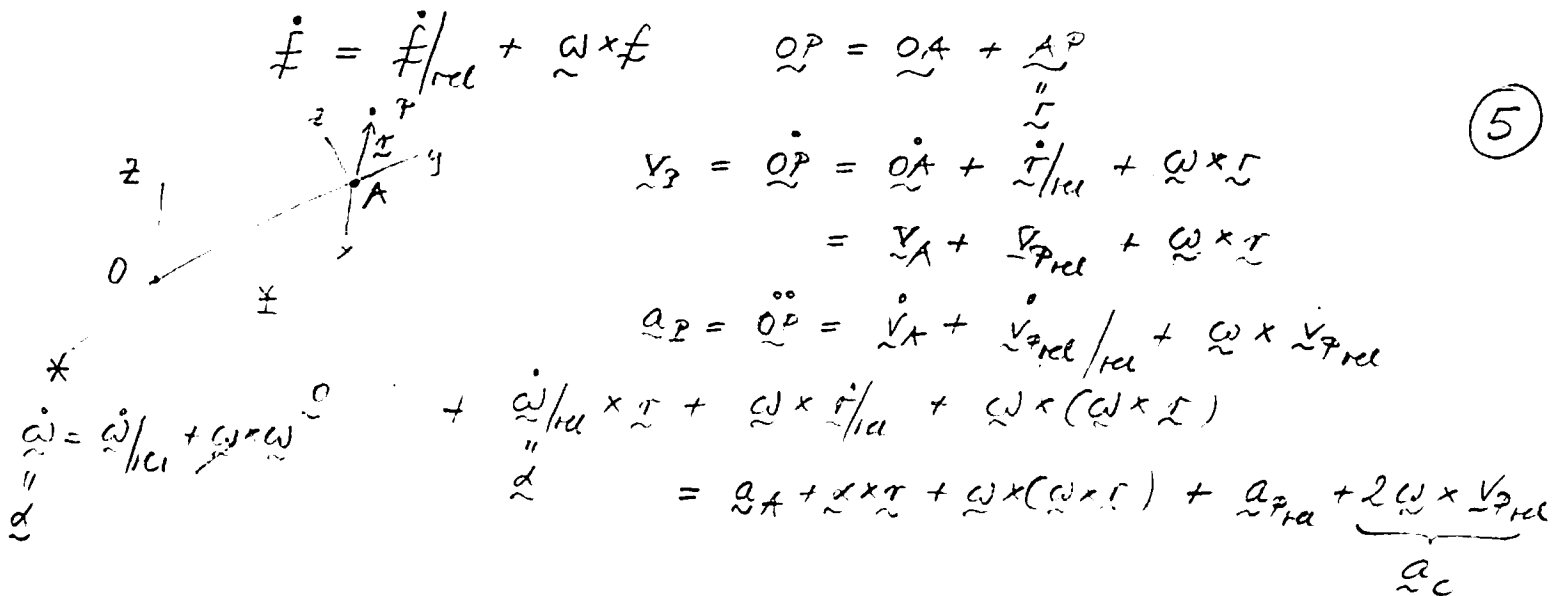 ḟ = ḟ/rel + ω × f    OP = OA + AP
" r
(5)
z P r y A x
Z O X
v_P = ȮP = ȮA + ṙ/rel + ω × r
= v_A + v_Prel + ω × r
a_P = ÖP = v̇_A + v̇_Prel/rel + ω × v_Prel
+ ω̇/rel × r + ω × ṙ/rel + ω × (ω × r)
" α
*
ω̇ = ω̇/rel + ω × ω 0
" α
= a_A + α × r + ω × (ω × r) + a_Prel + 2ω × v_Prel
a_c